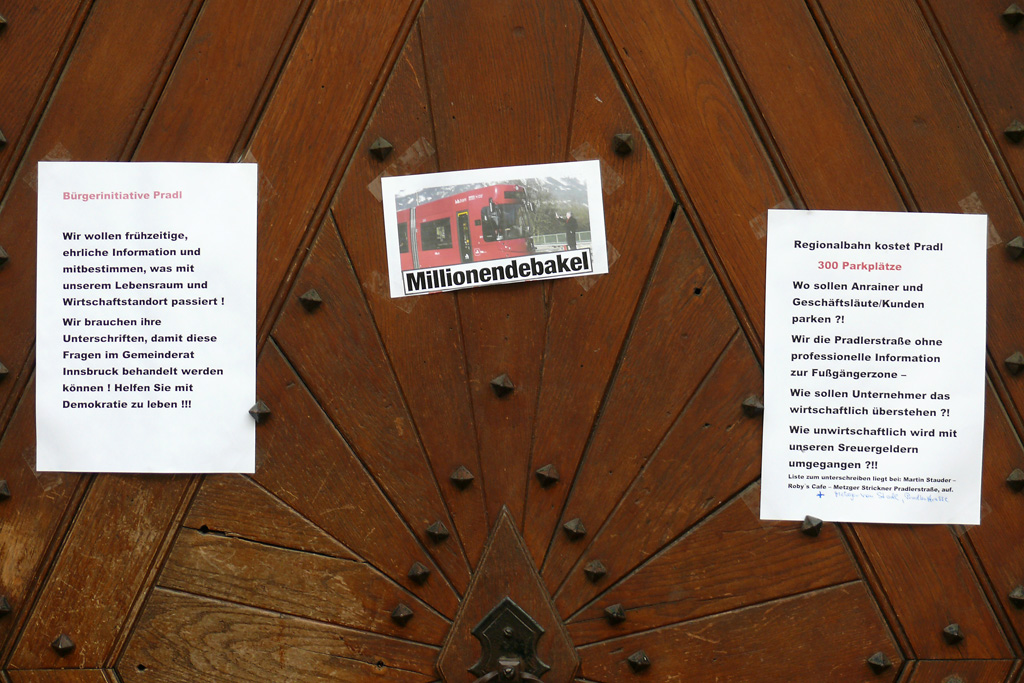 Bürgerinitiative Pradl
Wir wollen frühzeitige,
ehrliche Information und
mitbestimmen, was mit
unserem Lebensraum und
Wirtschaftstandort passiert !
Wir brauchen ihre
Unterschriften, damit diese
Fragen im Gemeinderat
Innsbruck behandelt werden
können ! Helfen Sie mit
Demokratie zu leben !!!
Millionendebakel
Regionalbahn kostet Pradl
300 Parkplätze
Wo sollen Anrainer und
Geschäftsläute/Kunden
parken ?!
Wir die Pradlerstraße ohne
professionelle Information
zur Fußgängerzone –
Wie sollen Unternehmer das
wirtschaftlich überstehen ?!
Wie unwirtschaftlich wird mit
unseren Sreuergeldern
umgegangen ?!!
Liste zum unterschreiben liegt bei: Martin Stauder –
Roby´s Cafe – Metzger Strickner Pradlerstraße, auf.
+